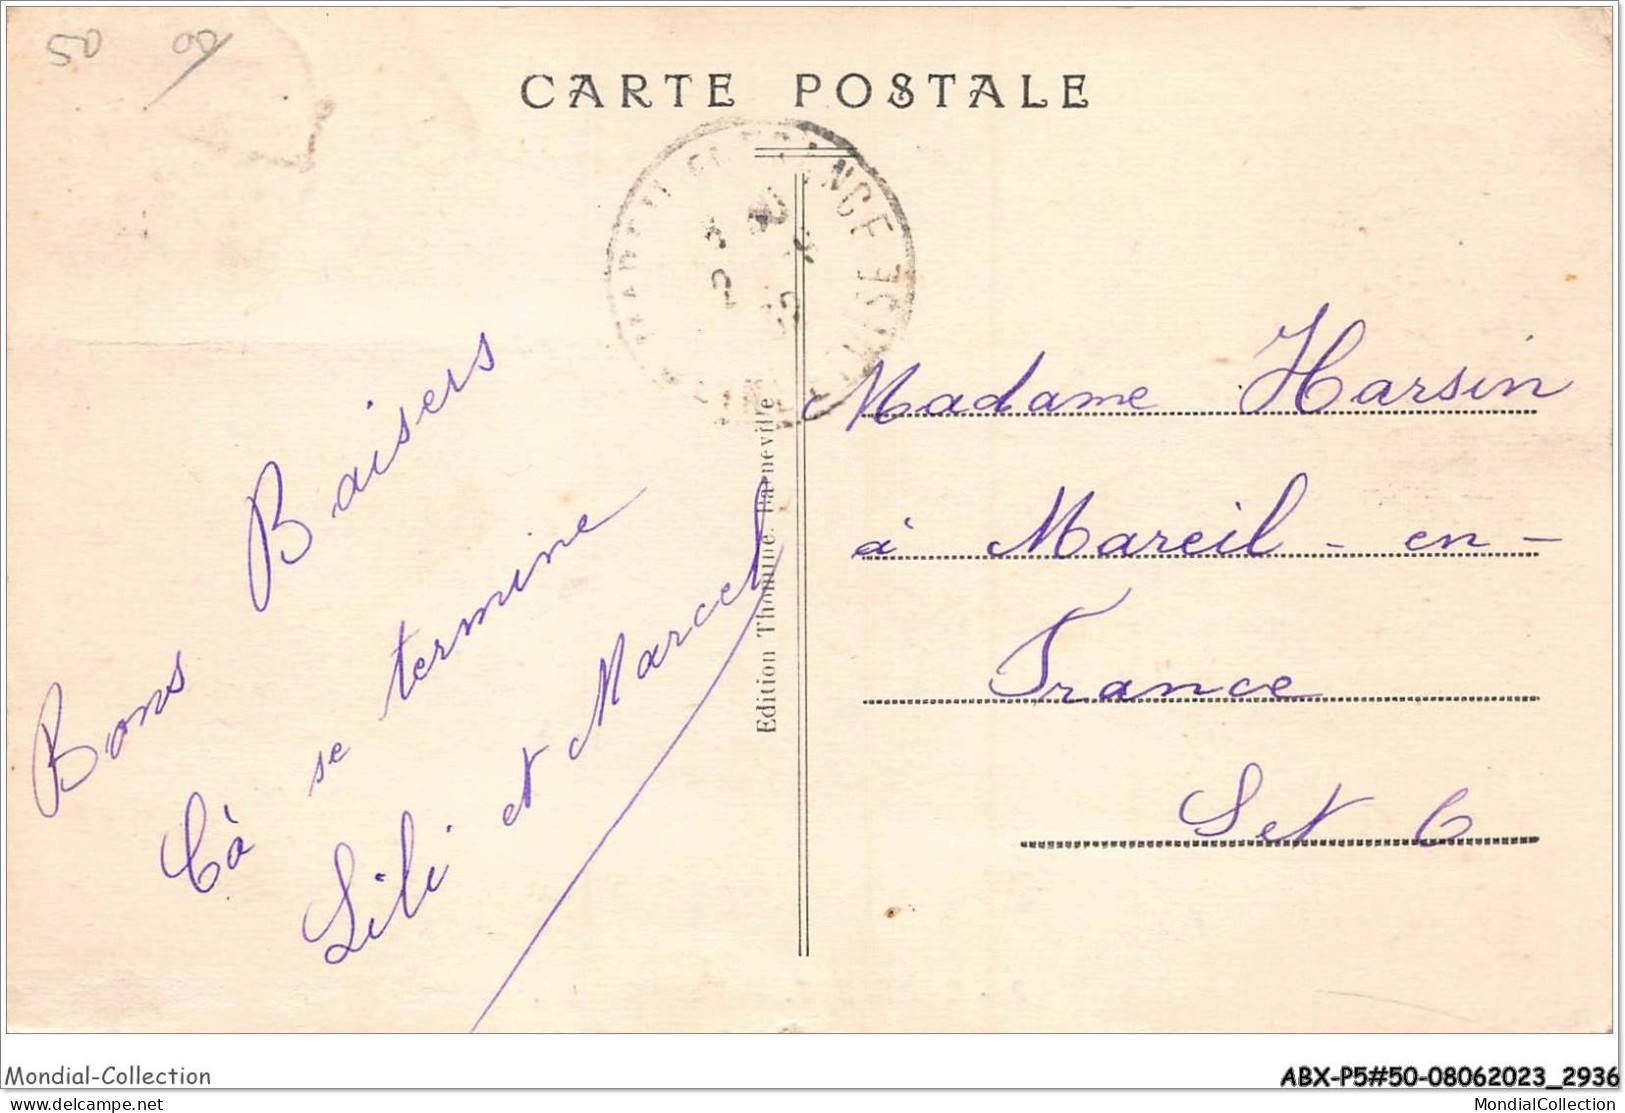 50
CARTE POSTALE
Bons Baisers
Cà se termine
Lili et Marcel
Edition Thomine, Barneville
Madame Harsin
à Mareil - en -
France
S et O
Mondial-Collection
ABX-P5#50-08062023_2936
delcampe.net
MondialCollection